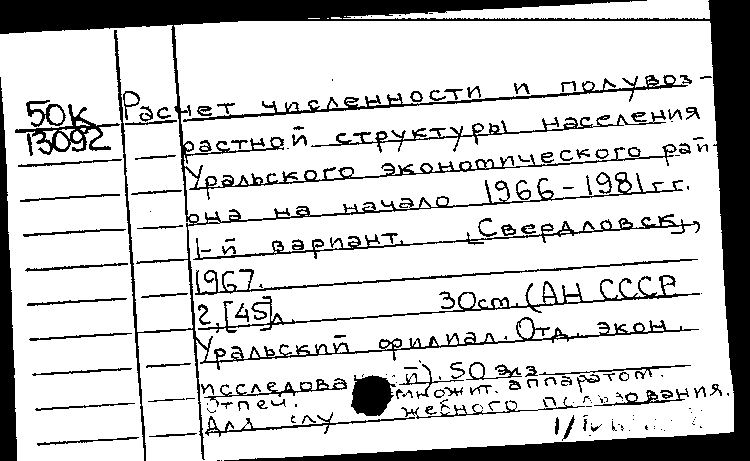 50К
13092
Расчет численности и полувоз-
растной структуры населения
Уральского экономического рай-
она на начало 1966-1981 г.г.
1-й вариант. [Свердловск],
1967.
2,[45]л. 30см. (АН СССР
Уральский филиал. Отд. экон.
исследова й). 50 экз.
Отпеч. множит. аппаратом.
Для служебного пользования.